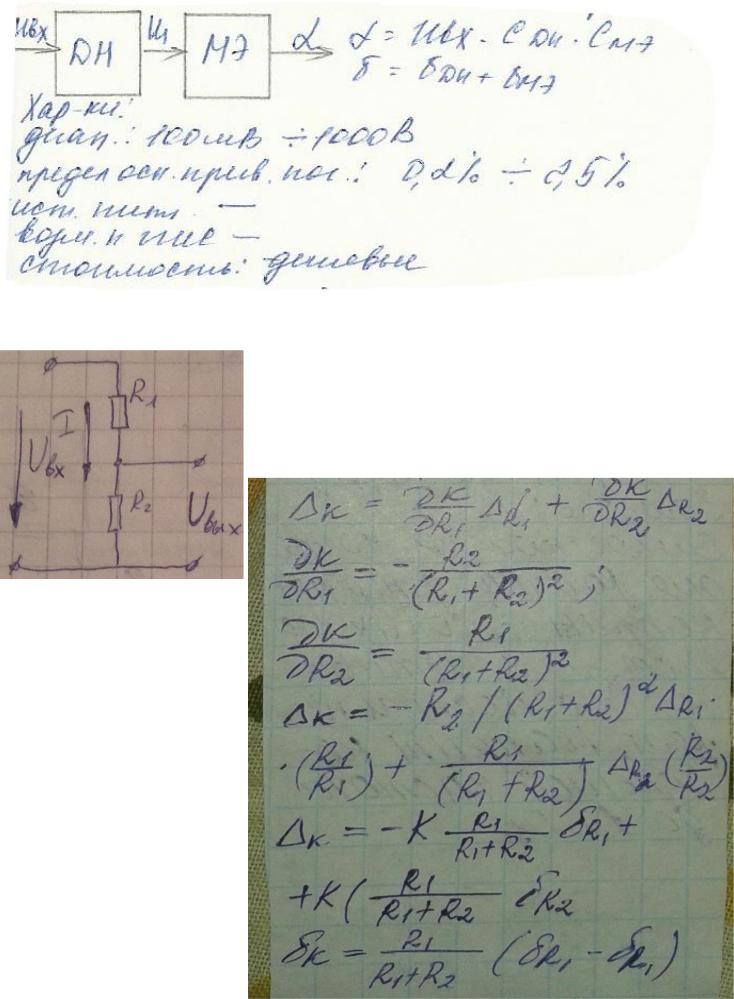 Uвх ДН U₁ МЭ α α = Uвх · Cдн · Cмэ
δ = δдн + δмэ
Хар-ки:
диап.: 100мВ ÷ 1000В
предел осн. прив. пог.: 0,2% ÷ 2,5%
ист. пит. —
—
стоимость: дешевые
R₁
I
Uвх
R₂
Uвых
Δк = ∂K/∂R₁ ΔR₁ + ∂K/∂R₂ ΔR₂
∂K/∂R₁ = - R₂/(R₁+R₂)² ;
∂K/∂R₂ = R₁/(R₁+R₂)²
Δк = - R₂/(R₁+R₂)² ΔR₁·
·(R₁/R₁) + R₁/(R₁+R₂) ΔR₂ (R₂/R₂)
Δк = -K R₁/R₁+R₂ δR₁ +
+K( R₁/R₁+R₂ δR₂
δк = R₁/R₁+R₂ (δR₁ - δR₁)